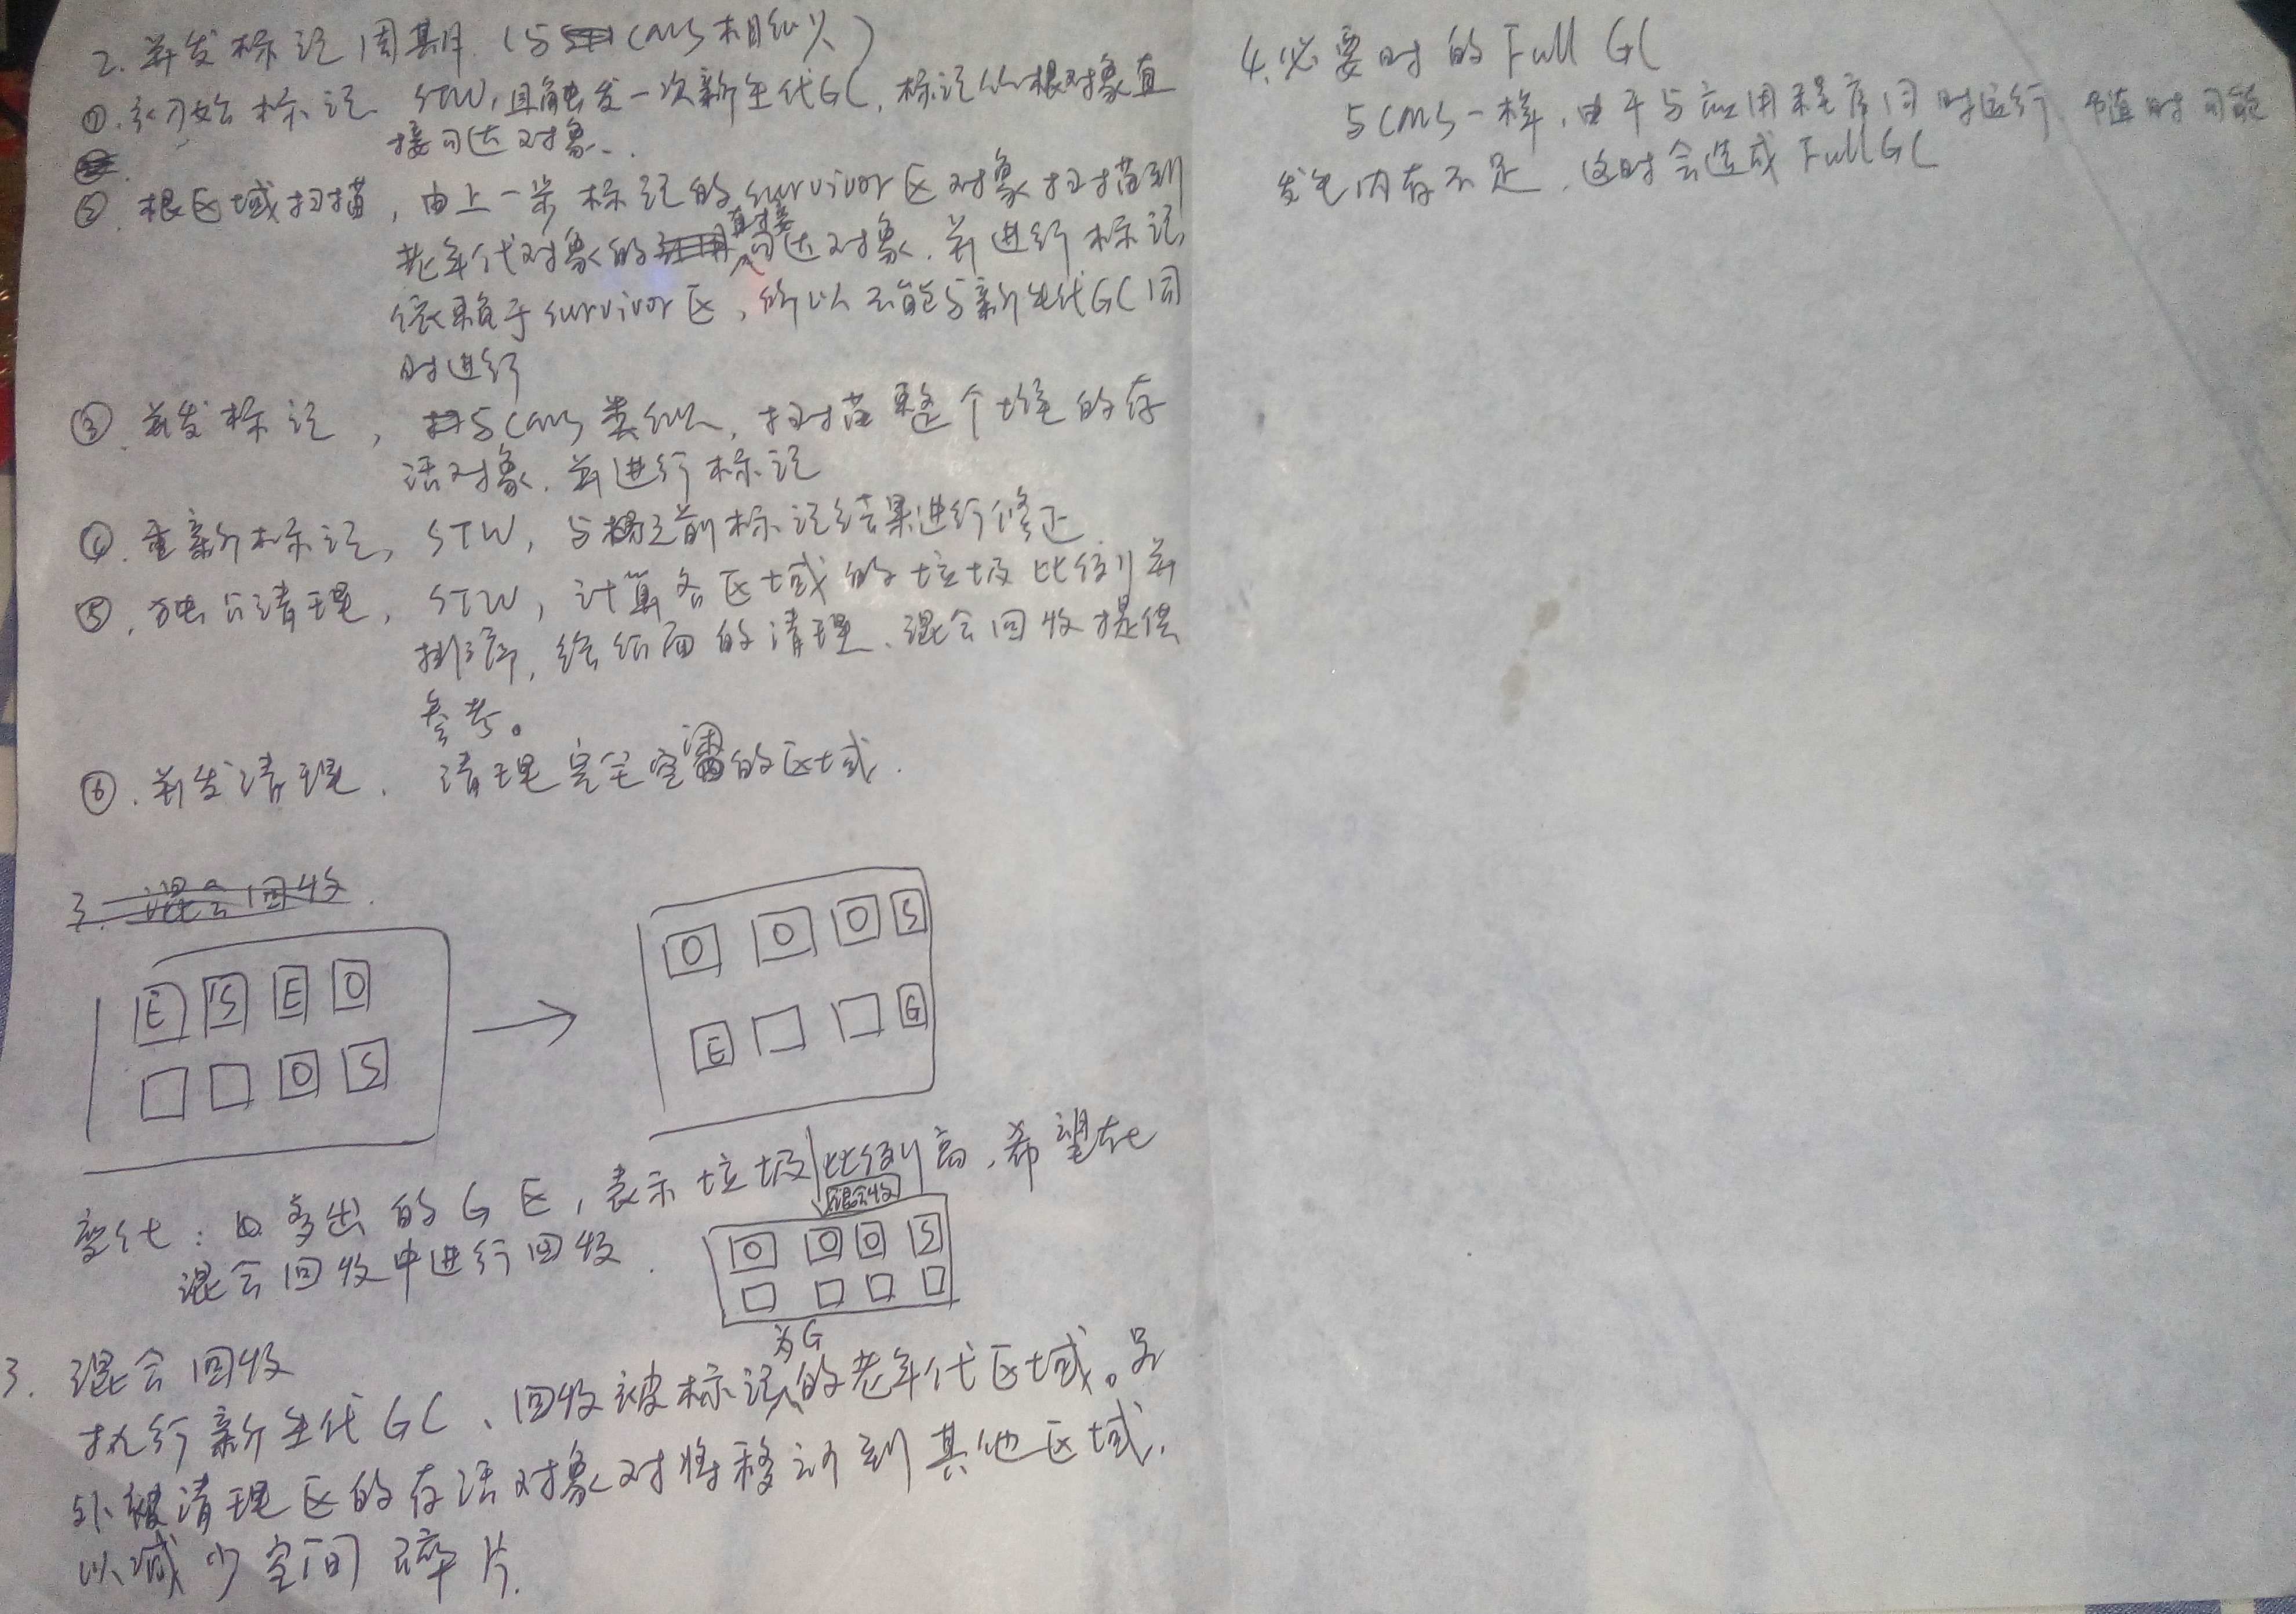 2. 并发标记周期.(与CMS相似)
①.初始标记 STW,且触发一次新生代GC,标记从根对象直
接可达对象.
②.根区域扫描,由上一步标记的survivor区对象扫描到
老年代对象的直接可达对象.并进行标记
依赖于survivor区,所以不能与新生代GC同
时进行
③.并发标记,与CMS类似,扫描整个堆的存
活对象.并进行标记
④.重新标记,STW,与之前标记结果进行修正
⑤.独占清理,STW,计算各区域的垃圾比例并
排序,给后面的清理、混合回收提供
参考。
⑥.并发清理.清理完全空闲的区域.
3. 混合回收.
E S E O
O S
O O O S
E G
变化:多出的G区,表示垃圾比例高,希望在
混合回收中进行回收.
混合回收
O O O S
3. 混合回收
执行新生代GC、回收被标记为G的老年代区域。另
外被清理区的存活对象对将移动到其他区域.
以减少空间碎片.
4.必要时的Full GC
与CMS一样,由于与应用程序同时运行 随时可能
发生内存不足.这时会造成FullGC